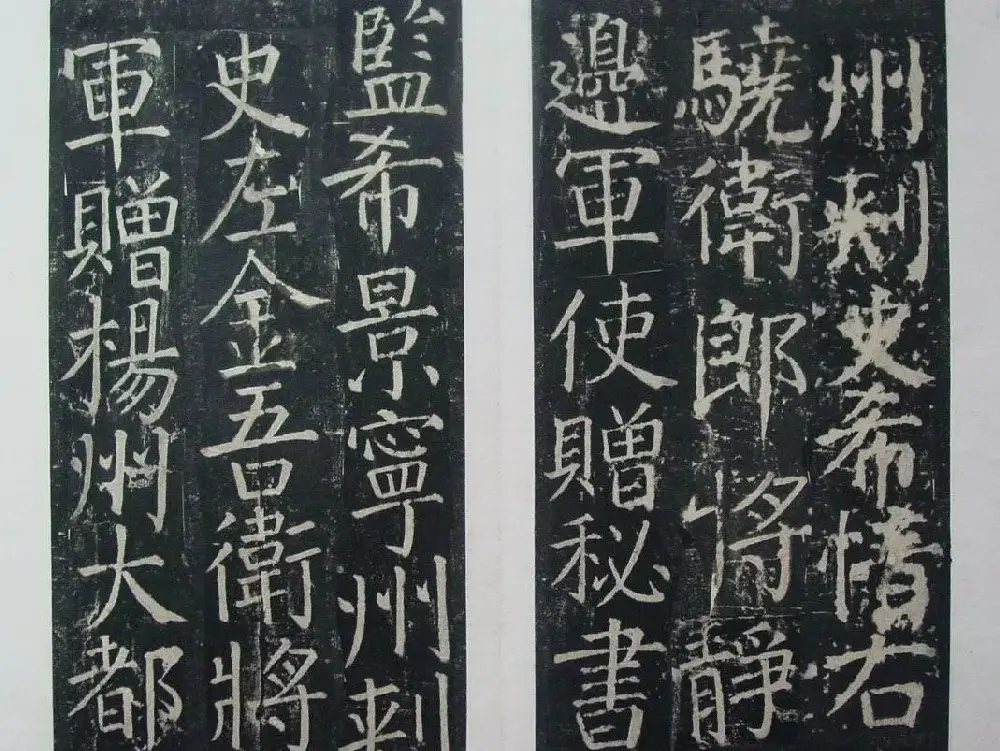 州刺史希愔右
驍衛郎將靜
邊軍使贈秘書
監希景寧州刺
史左金吾衛將
軍贈楊州大都